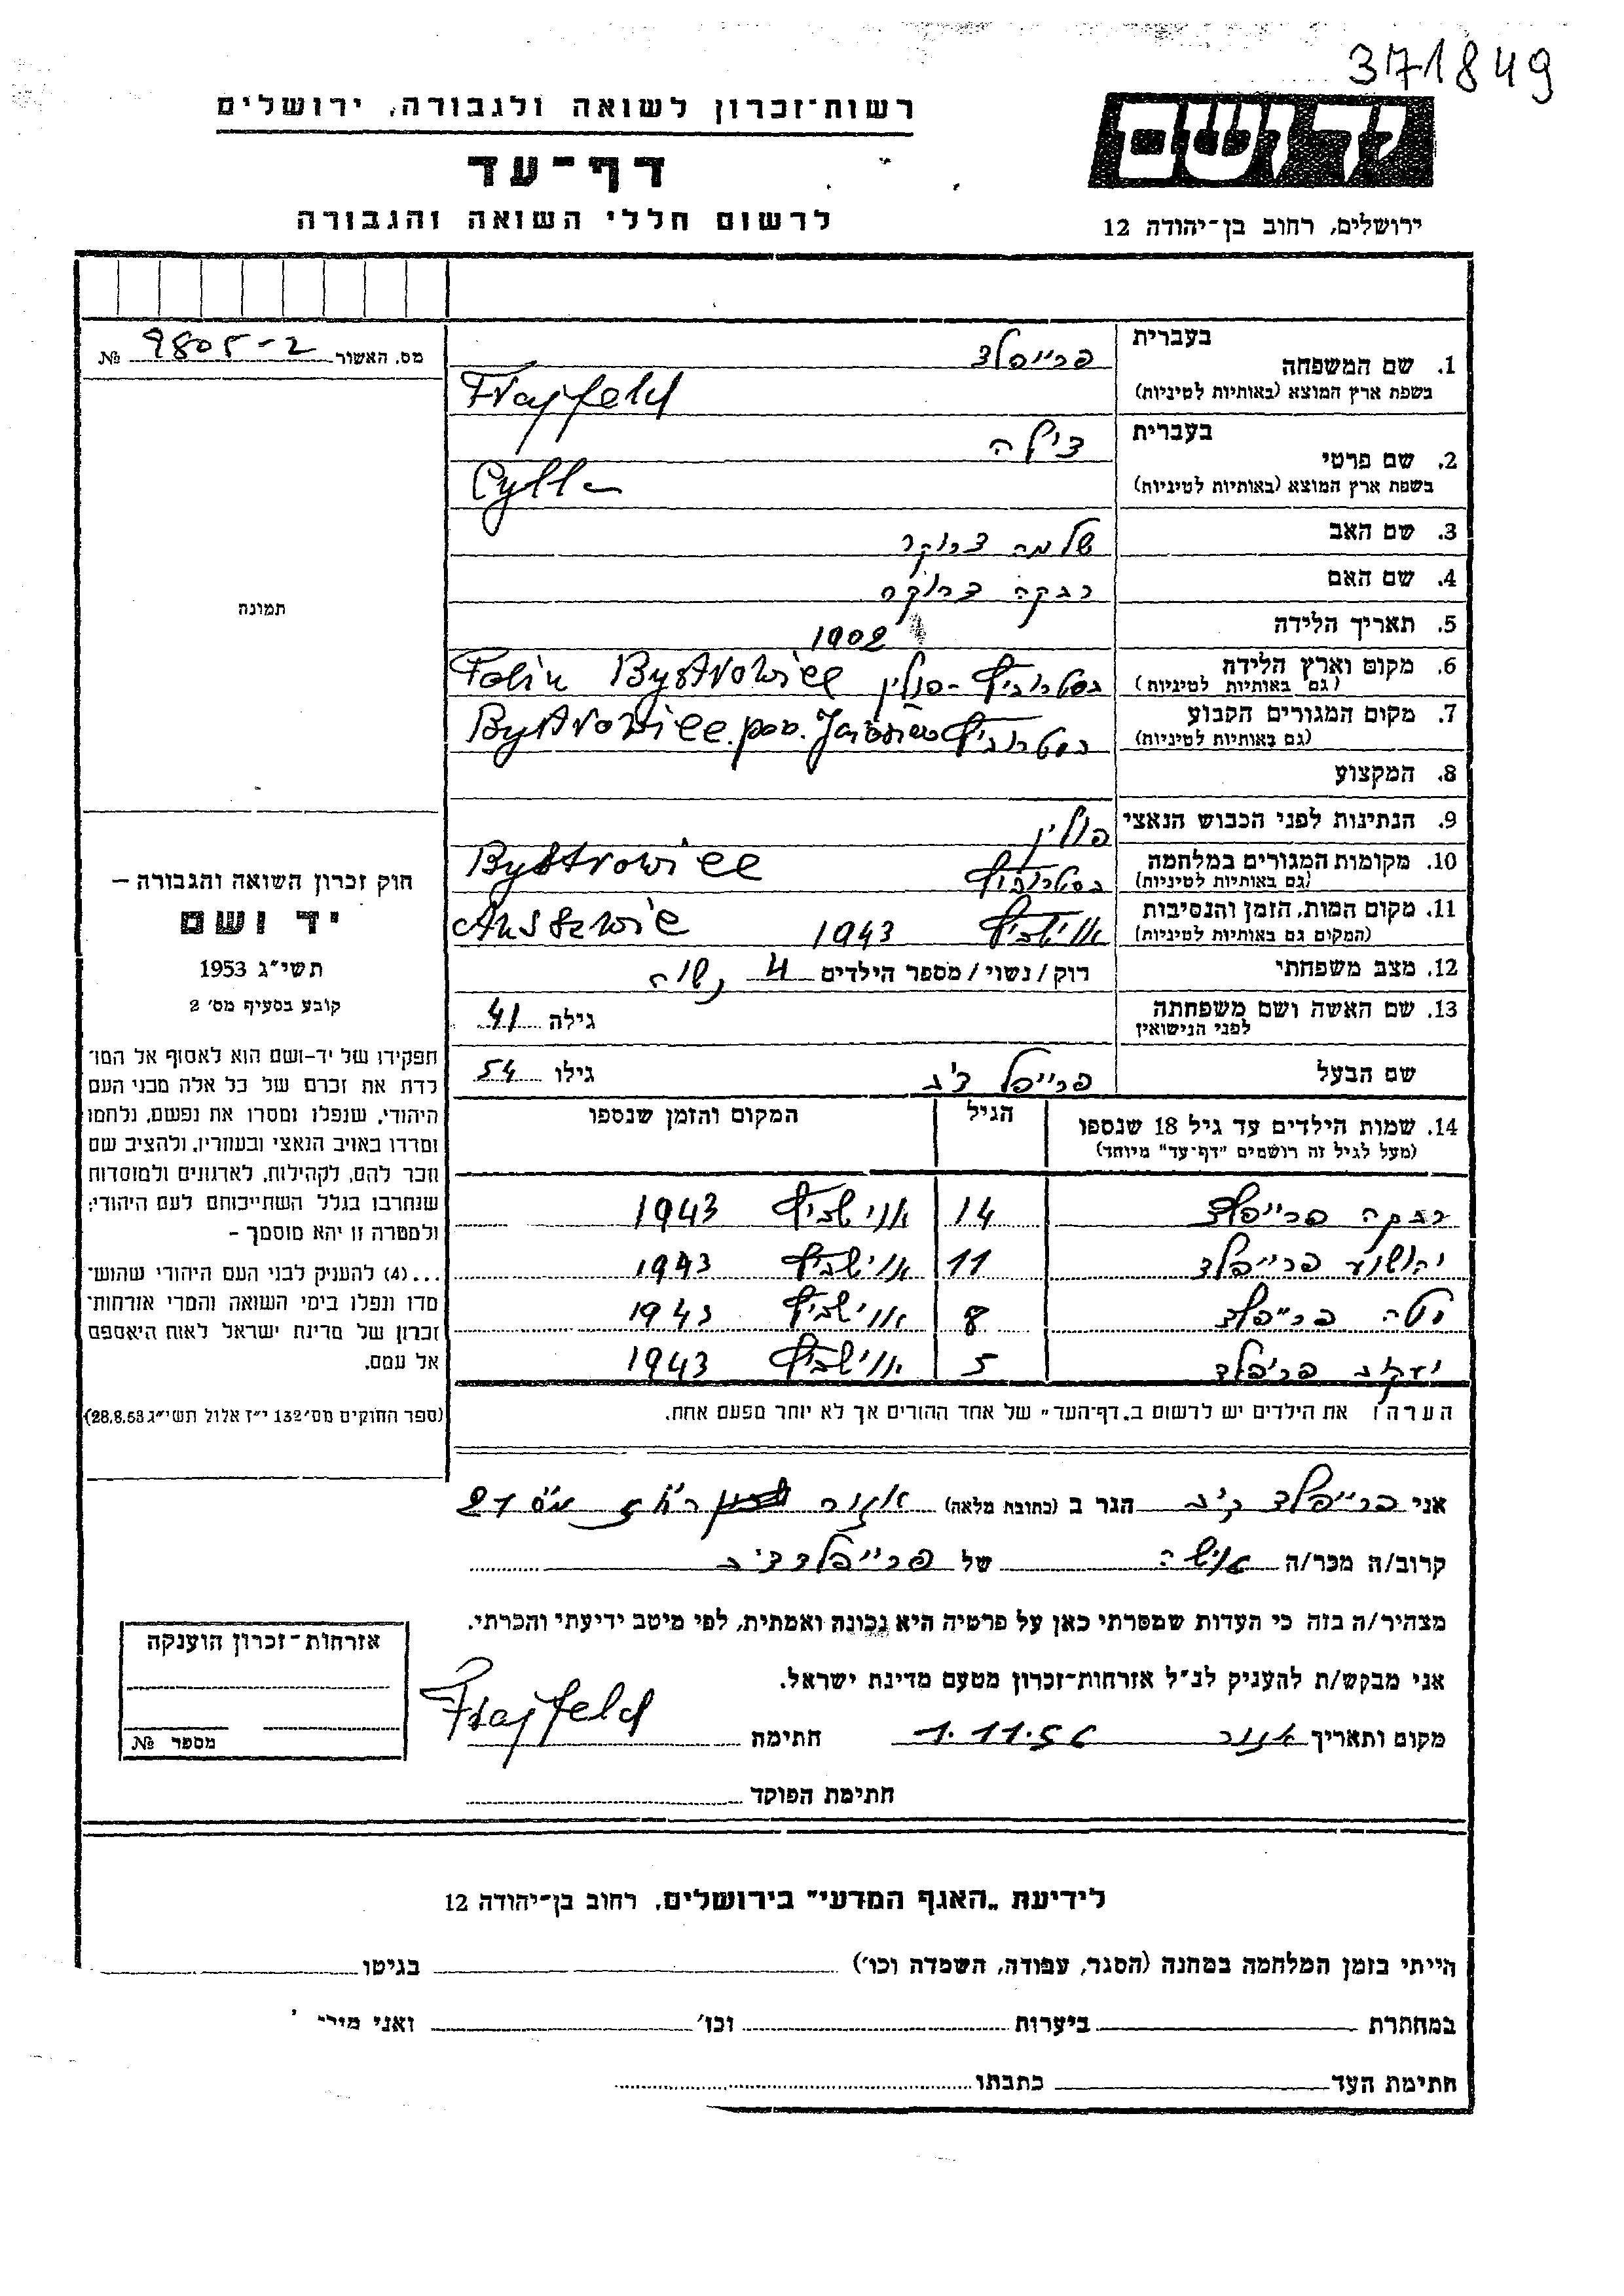 371849
יד ושם
רשות־זכרון לשואה ולגבורה, ירושלים
דף־עד
לרשום חללי השואה והגבורה
ירושלים, רחוב בן־יהודה 12
מס. האשור 9805-2 №
תמונה
חוק זכרון השואה והגבורה –
יד ושם
תשי״ג 1953
קובע בסעיף מס׳ 2
תפקידו של יד-ושם הוא לאסוף אל המו־
לדת את זכרם של כל אלה מבני העם
היהודי, שנפלו ומסרו את נפשם, נלחמו
ומרדו באויב הנאצי ובעוזריו, ולהציב שם
וזכר להם, לקהילות, לארגונים ולמוסדות
שנחרבו בגלל השתייכותם לעם היהודי;
ולמטרה זו יהא מוסמך –
...(4) להעניק לבני העם היהודי שהוש־
מדו ונפלו בימי השואה והמרי אזרחות־
זכרון של מדינת ישראל לאות היאספם
אל עמם.
(ספר החוקים מס׳ 132 י״ז אלול תשי״ג 28.8.53)
1. שם המשפחה בעברית פרייפלד
בשפת ארץ המוצא (באותיות לטיניות) Frajfeld
2. שם פרטי בעברית צילה
בשפת ארץ המוצא (באותיות לטיניות) Cylla
3. שם האב שלמה צרוקר
4. שם האם רבקה
5. תאריך הלידה 1902
6. מקום וארץ הלידה (גם באותיות לטיניות) בסטרוביץ - פולין Bystrowiec Polin
7. מקום המגורים הקבוע (גם באותיות לטיניות) בסטרוביץ Bystrowiec pow.
8. המקצוע
9. הנתינות לפני הכבוש הנאצי פולין
10. מקומות המגורים במלחמה (גם באותיות לטיניות) בסטרוביץ Bystrowiec
11. מקום המות, הזמן והנסיבות (המקום גם באותיות לטיניות) אוישביץ 1943
12. מצב משפחתי רוק/נשוי/מספר הילדים 4 נשוה
13. שם האשה ושם משפחתה לפני הנישואין גילה 41
שם הבעל גילו 54
14. שמות הילדים עד גיל 18 שנספו הגיל המקום והזמן שנספו
(מעל לגיל זה רושמים "דף־עד" מיוחד)
רבקה פרייפלד 14 אוישביץ 1943
יהושוע פרייפלד 11 אוישביץ 1943
יטה פרייפלד 8 אוישביץ 1943
יעקוב פריפלד 5 אוישביץ 1943
הערה: את הילדים יש לרשום ב„דף־העד" של אחד ההורים אך לא יותר מפעם אחת.
אני פרייפלד הגר ב (כתובת מלאה) אזור 21
קרוב/ה מכר/ה אישה של פרייפלד
מצהיר/ה בזה כי העדות שמסרתי כאן על פרטיה היא נכונה ואמתית, לפי מיטב ידיעתי והכרתי.
אני מבקש/ת להעניק לנ״ל אזרחות־זכרון מטעם מדינת ישראל.
מקום ותאריך אזור 1.11.56 חתימה Frajfeld
חתימת הפוקד
אזרחות־זכרון הוענקה
מספר №
לידיעת „האגף המדעי" בירושלים, רחוב בן־יהודה 12
הייתי בזמן המלחמה במחנה (הסגר, עבודה, השמדה וכו׳) בגיטו
במחתרת ביערות וכו׳ ואני
חתימת העד כתבתו